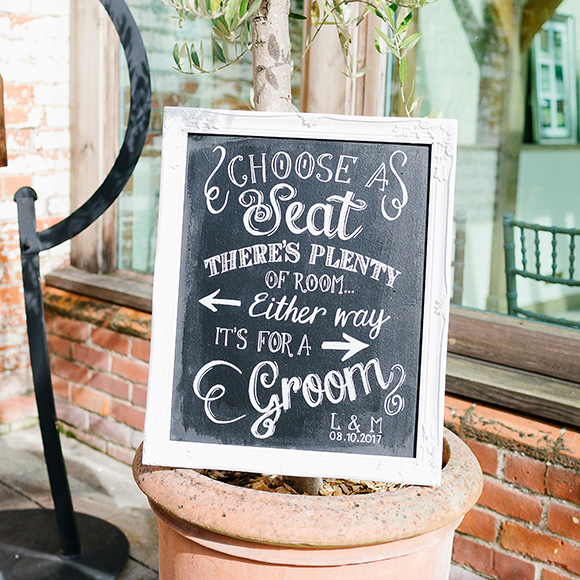 CHOOSE A
Seat
THERE'S PLENTY
OF ROOM...
Either way
IT'S FOR A
Groom
L & M
08.10.2017